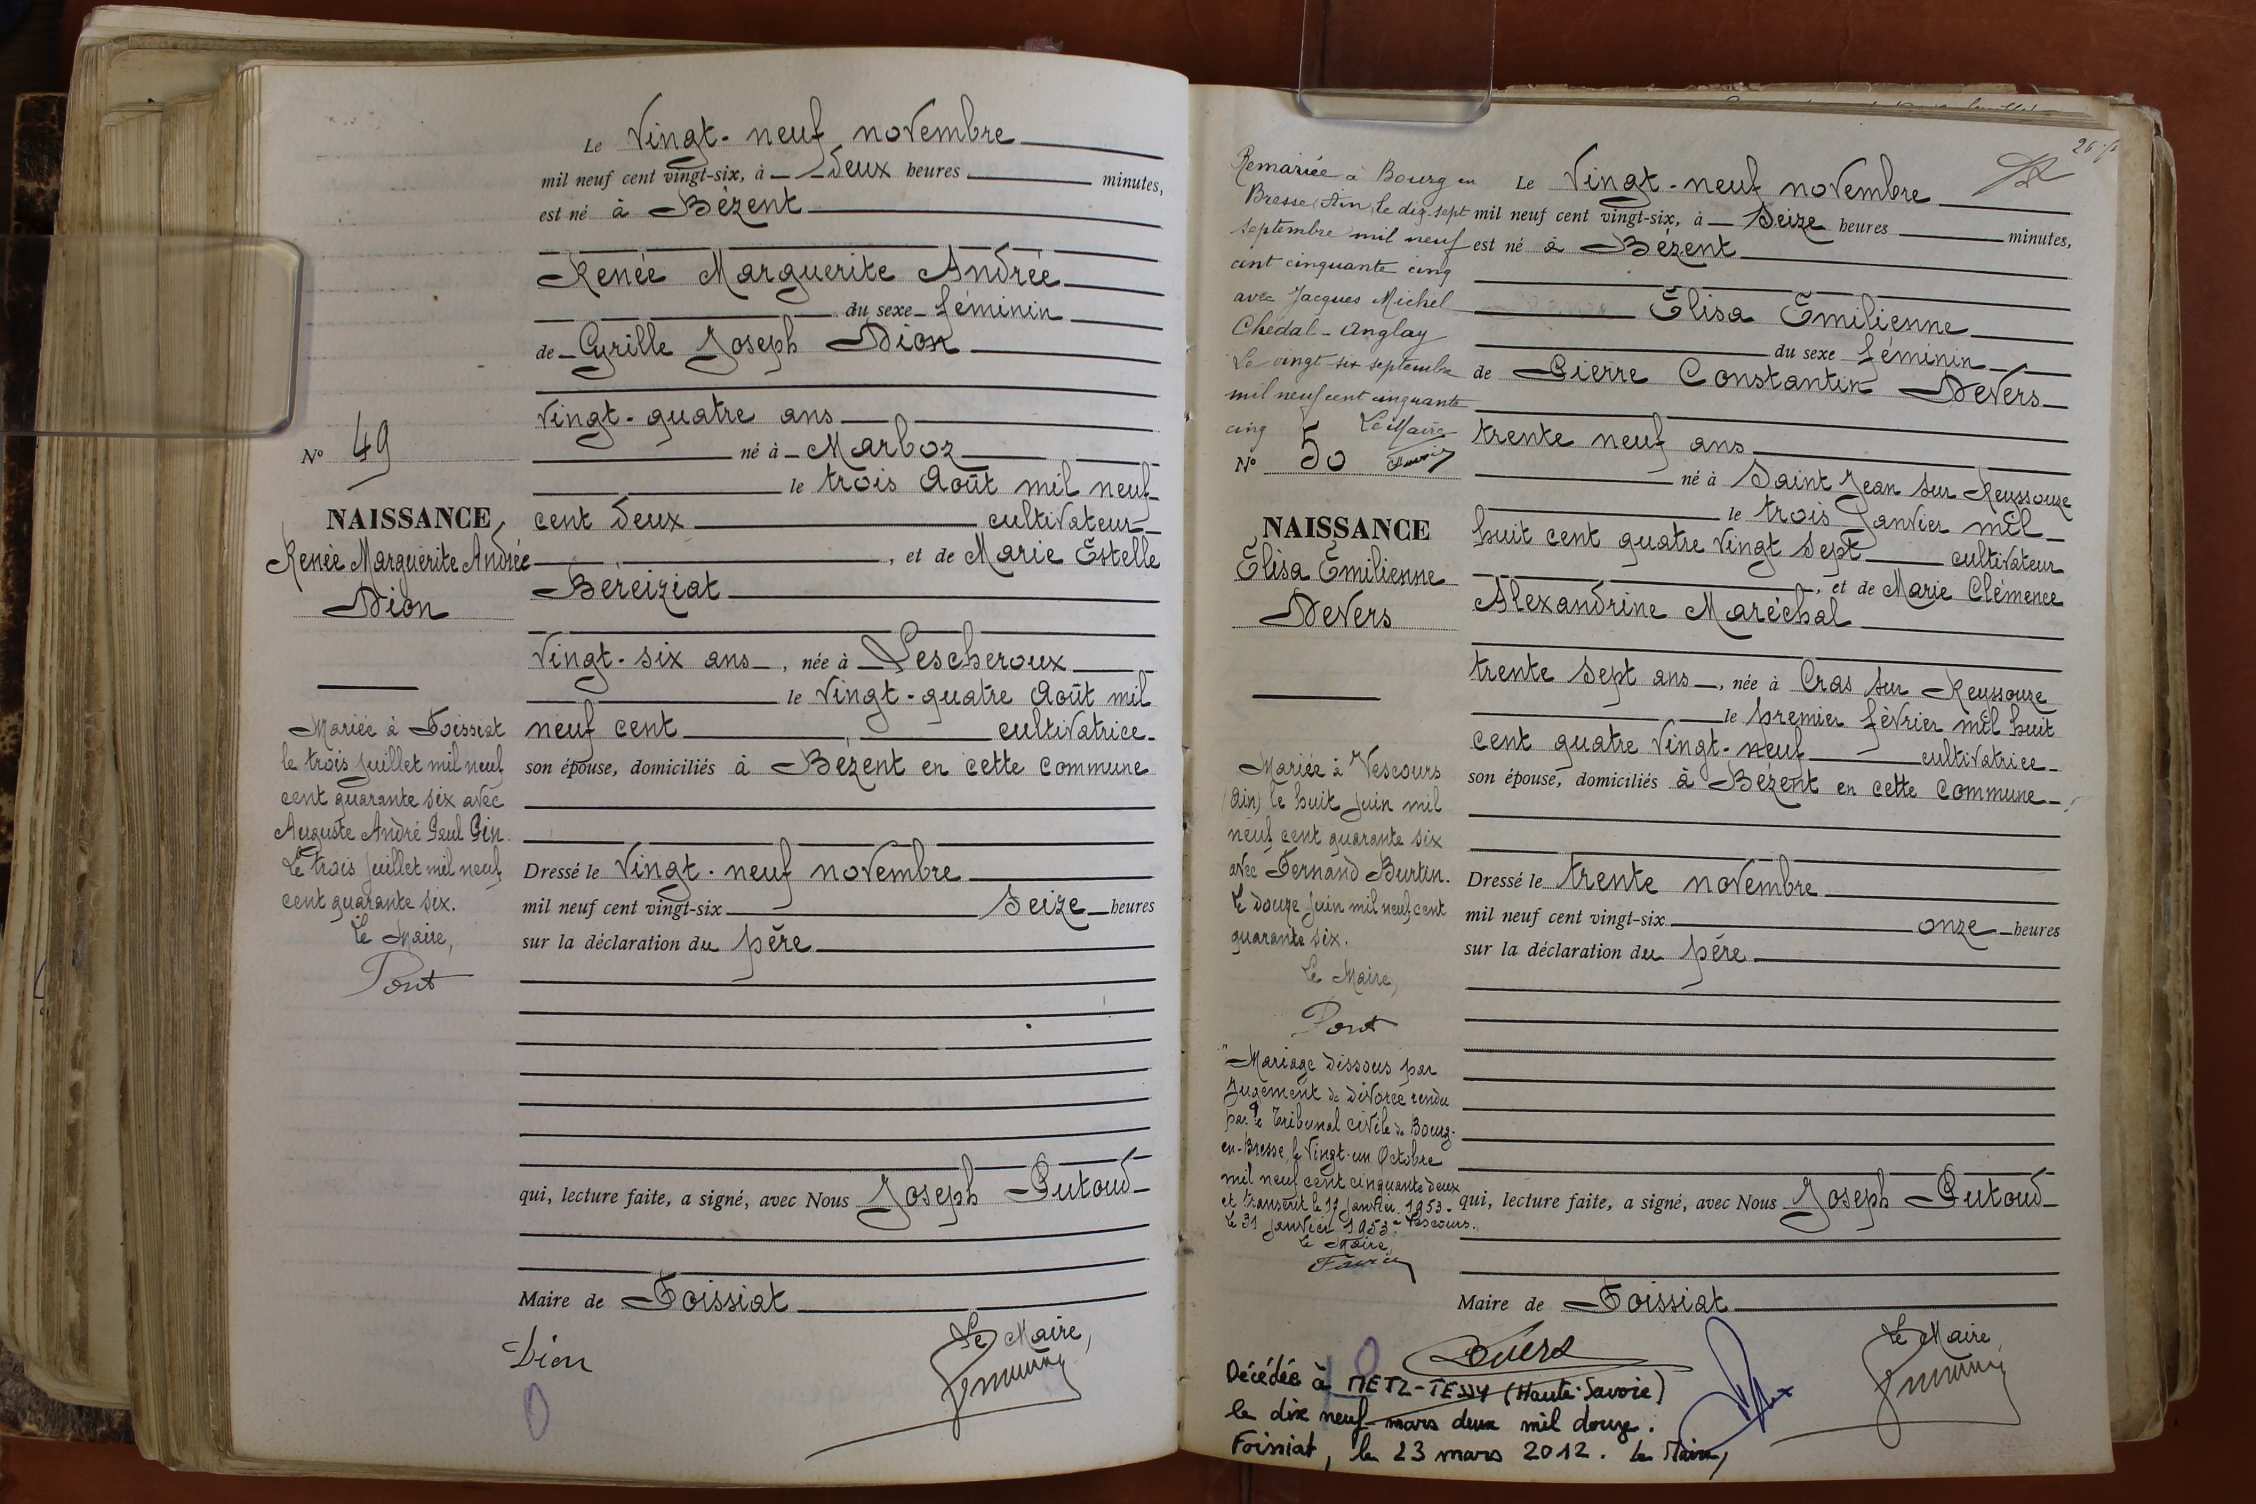 Le Vingt-neuf novembre
mil neuf cent vingt-six, à deux heures minutes,
est né à Bézent
Renée Marguerite Andrée
du sexe féminin
de Cyrille Joseph Dion
vingt-quatre ans
né à Marboz
le trois Août mil neuf
cent deux cultivateur
, et de Marie Estelle
Béreiziat
vingt-six ans, née à Lescheroux
le vingt-quatre Août mil
neuf cent, cultivatrice
son épouse, domiciliés à Bézent en cette commune
Dressé le vingt-neuf novembre
mil neuf cent vingt-six seize heures
sur la déclaration du père
qui, lecture faite, a signé, avec Nous Joseph Putoud
Maire de Foissiat
Dion
Le Maire,
N° 49
NAISSANCE
Renée Marguerite Andrée
Dion
Mariée à Foissiat
le trois juillet mil neuf
cent quarante six avec
Auguste André Paul Pin.
Le trois juillet mil neuf
cent quarante six.
Le Maire,
Pont
26
Le Vingt-neuf novembre
mil neuf cent vingt-six, à seize heures minutes,
est né à Bézent
Elisa Emilienne
du sexe féminin
de Pierre Constantin Devers
trente neuf ans
né à Saint Jean sur Reyssouze
le trois Janvier mil
huit cent quatre vingt sept cultivateur
, et de Marie Clémence
Alexandrine Maréchal
trente sept ans, née à Cras sur Reyssouze
le premier février mil huit
cent quatre vingt-neuf cultivatrice
son épouse, domiciliés à Bézent en cette commune
Dressé le trente novembre
mil neuf cent vingt-six onze heures
sur la déclaration du père
qui, lecture faite, a signé, avec Nous Joseph Putoud
Maire de Foissiat
Devers
Le Maire
Remariée à Bourg en
Bresse (Ain) le dix-sept
septembre mil neuf
cent cinquante cinq
avec Jacques Michel
Chedal-Anglay
Le vingt-six septembre
mil neuf cent cinquante
cinq Le Maire
N° 50
NAISSANCE
Elisa Emilienne
Devers
Mariée à Vescours
(Ain) le huit juin mil
neuf cent quarante six
avec Fernand Burtin.
Le douze juin mil neuf cent
quarante six.
Le Maire,
Pont
"Mariage dissous par
Jugement de divorce rendu
par le Tribunal civil de Bourg-
en-Bresse, le vingt-un Octobre
mil neuf cent cinquante deux
et transcrit le 17 Janvier 1953 à Vescours.
Le 31 Janvier 1953.
Le Maire,
Décédée à METZ-TESSY (Haute-Savoie)
le dix neuf mars deux mil douze.
Foissiat, le 23 mars 2012. Le Maire,